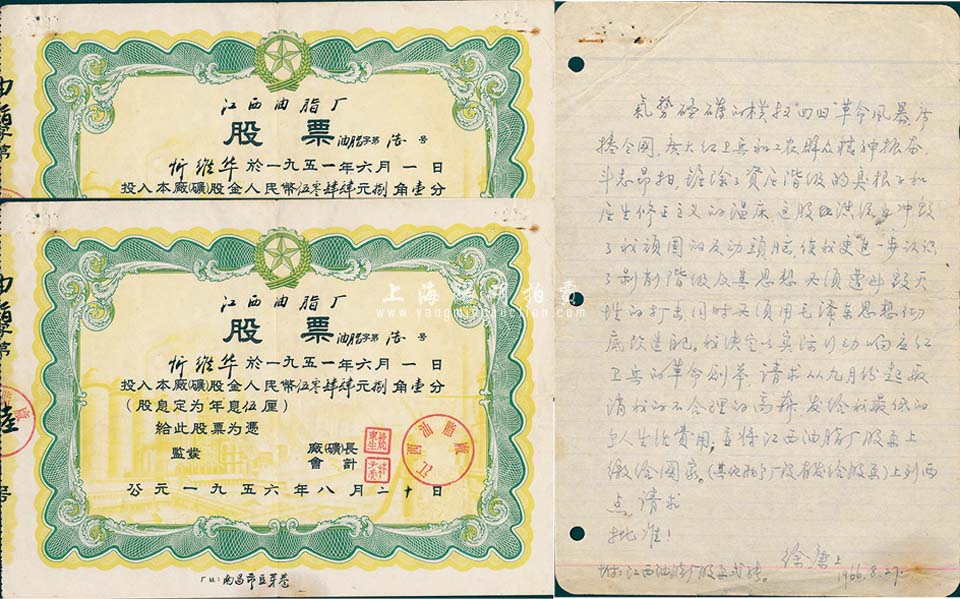 江西油脂厂
股票 油脂字第 陆 号
忻维华於一九五一年六月一日
投入本廠(礦)股金人民幣伍零肆肆元捌角壹分
江西油脂厂
股票 油脂字第 陆 号
忻维华於一九五一年六月一日
投入本廠(礦)股金人民幣伍零肆肆元捌角壹分
(股息定为年息伍厘)
給此股票为凭
監業
廠(礦)長
會計
公元一九五六年八月二十日
厂址:南昌市豆芽巷
上海阳明拍卖
www.yangmingauction.com
氣势磅礴的横扫“四旧”革命风暴,席
捲全国,廣大红卫兵和工农群众精神振奋,
斗志昂扬,鏟除了資产階级的臭根子和
产生修正主义的温床,这股洪流也冲毁
了我顽固的反动頭脑,使我更進一步认识
了剥削階级及其思想必须遭到毁灭
性的打击同时必须用毛泽东思想彻
底改造自己。我决定以实际行动响应红
卫兵的革命創举,请求从九月份起取
消我的不合理的高薪,发给我最低的
个人生活费用,並将江西油脂厂股票上
缴给國家。(其他 厂没有发给股票)上列两
点,请求
批准!
1966.8.27.
附:江西油脂厂股票 张。